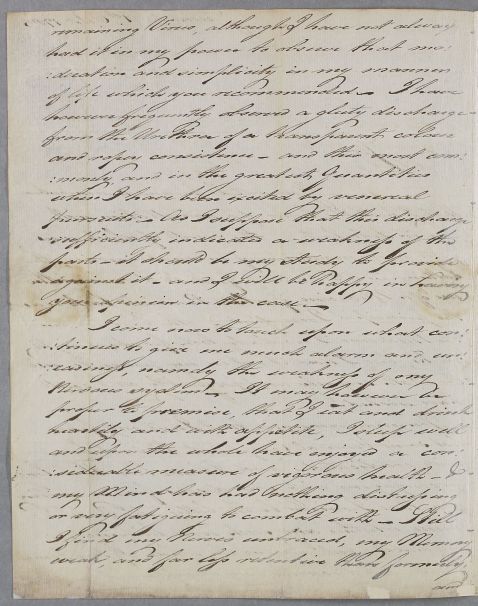 remaining Virus, although I have not always
had it in my power to observe that mo:
:deration and simplicity in my manner
of life which you recommended – I have
however frequently observed a gluty discharge
from the Urethra of a transparent colour
and ropey consistence – and this most com:
:monly and in the greatest Quantities
when I have been excited by venereal
– As I suppose that this discharge
sufficiently indicates a weakness of the
parts – it should be my study to provide
against it – and I will be happy in having
your opinion in the case –
I come now to touch upon what con:
:tinues to give me much alarm and un:
:easiness, namely the weakness of my
Nervous system – It may however be
proper to premise, that I eat and drink
heartily and with appetite, I sleep well
and upon the whole have enjoyed a con:
:siderable measure of vigorous health – &
my Mind has had nothing distressing
or very fatiguing to combat with – Still
I find my Nerves unbraced, my Memory
weak, and far less retentive than formerly,
and